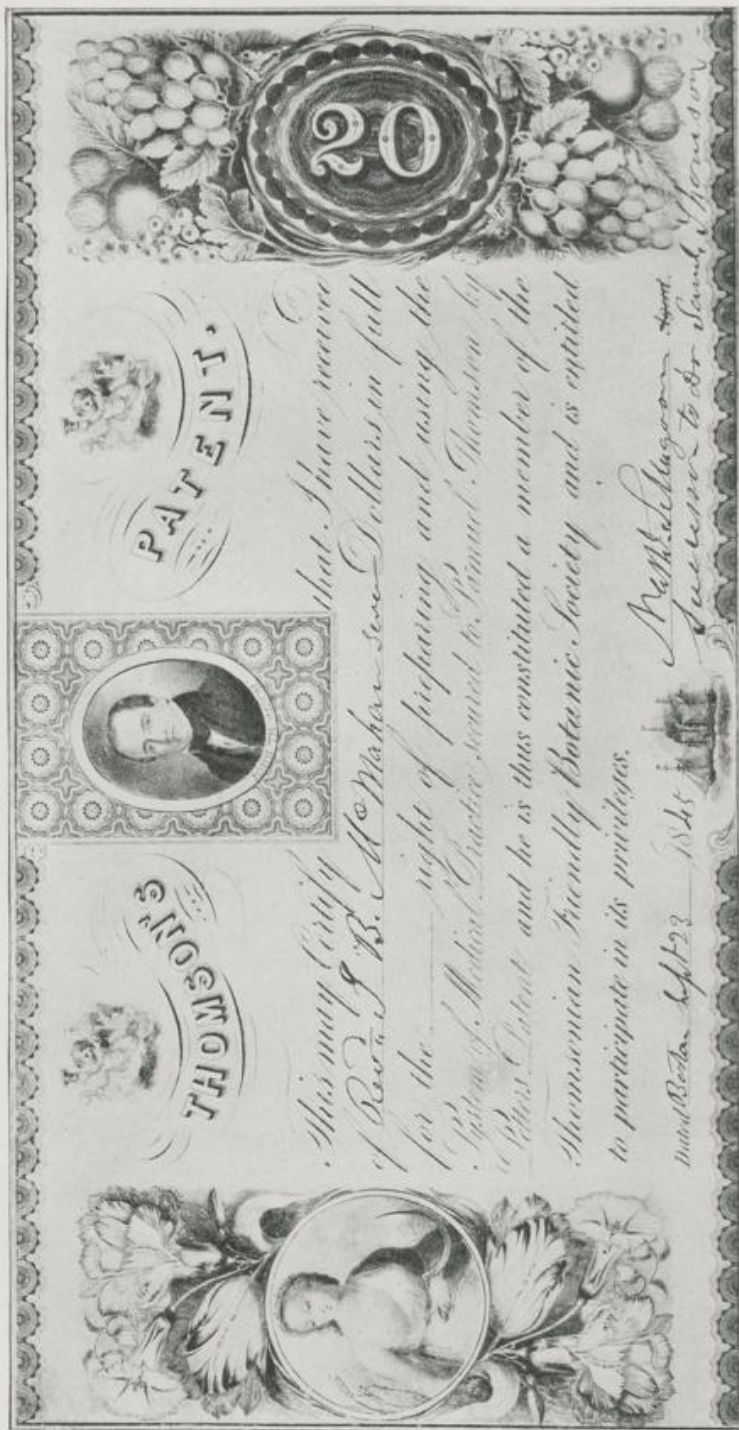 THOMSON'S PATENT.
20
This may Certify that I have receive
of Revd J B. McMahan Dollars in full
for the right of preparing and using the
System of Medical Practice secured to Dr Samuel Thomson by
Letters Patent and he is thus constituted a member of the
Thomsonian Friendly Botanic Society and is entitled
to participate in its privileges.
Dated Boston Sept 23 1845
Nathl S Magoon
Successor to Dr Saml Thomson